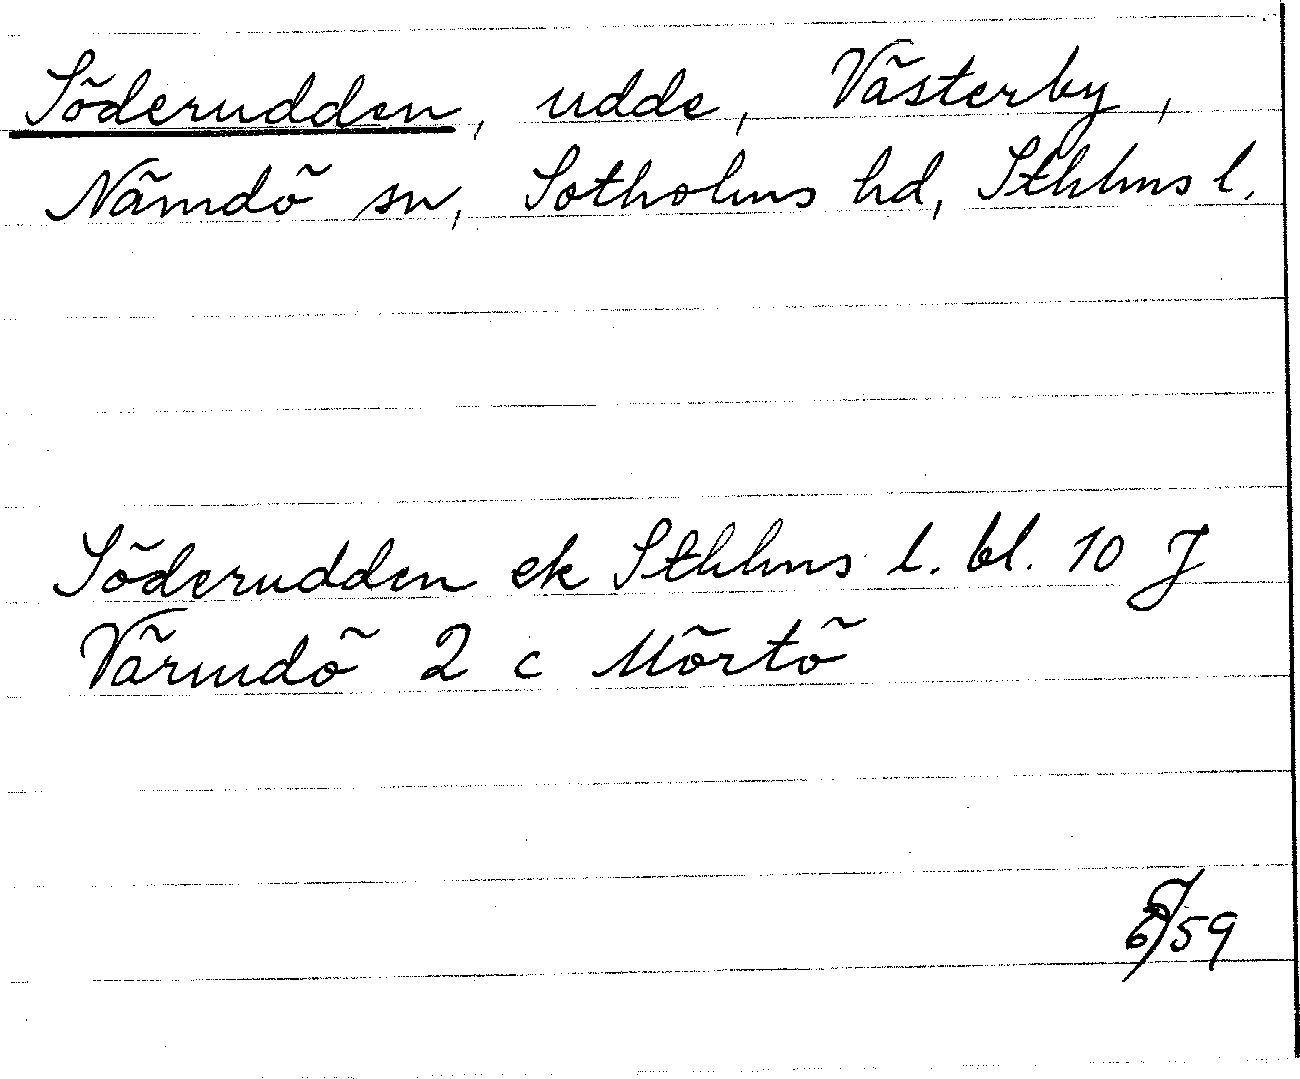 Söderudden, udde, Västerby,
Nämdö sn, Sotholms hd, Sthlms l.
Söderudden ek Sthlms l. bl. 10 J
Värmdö 2 c Mörtö
/59